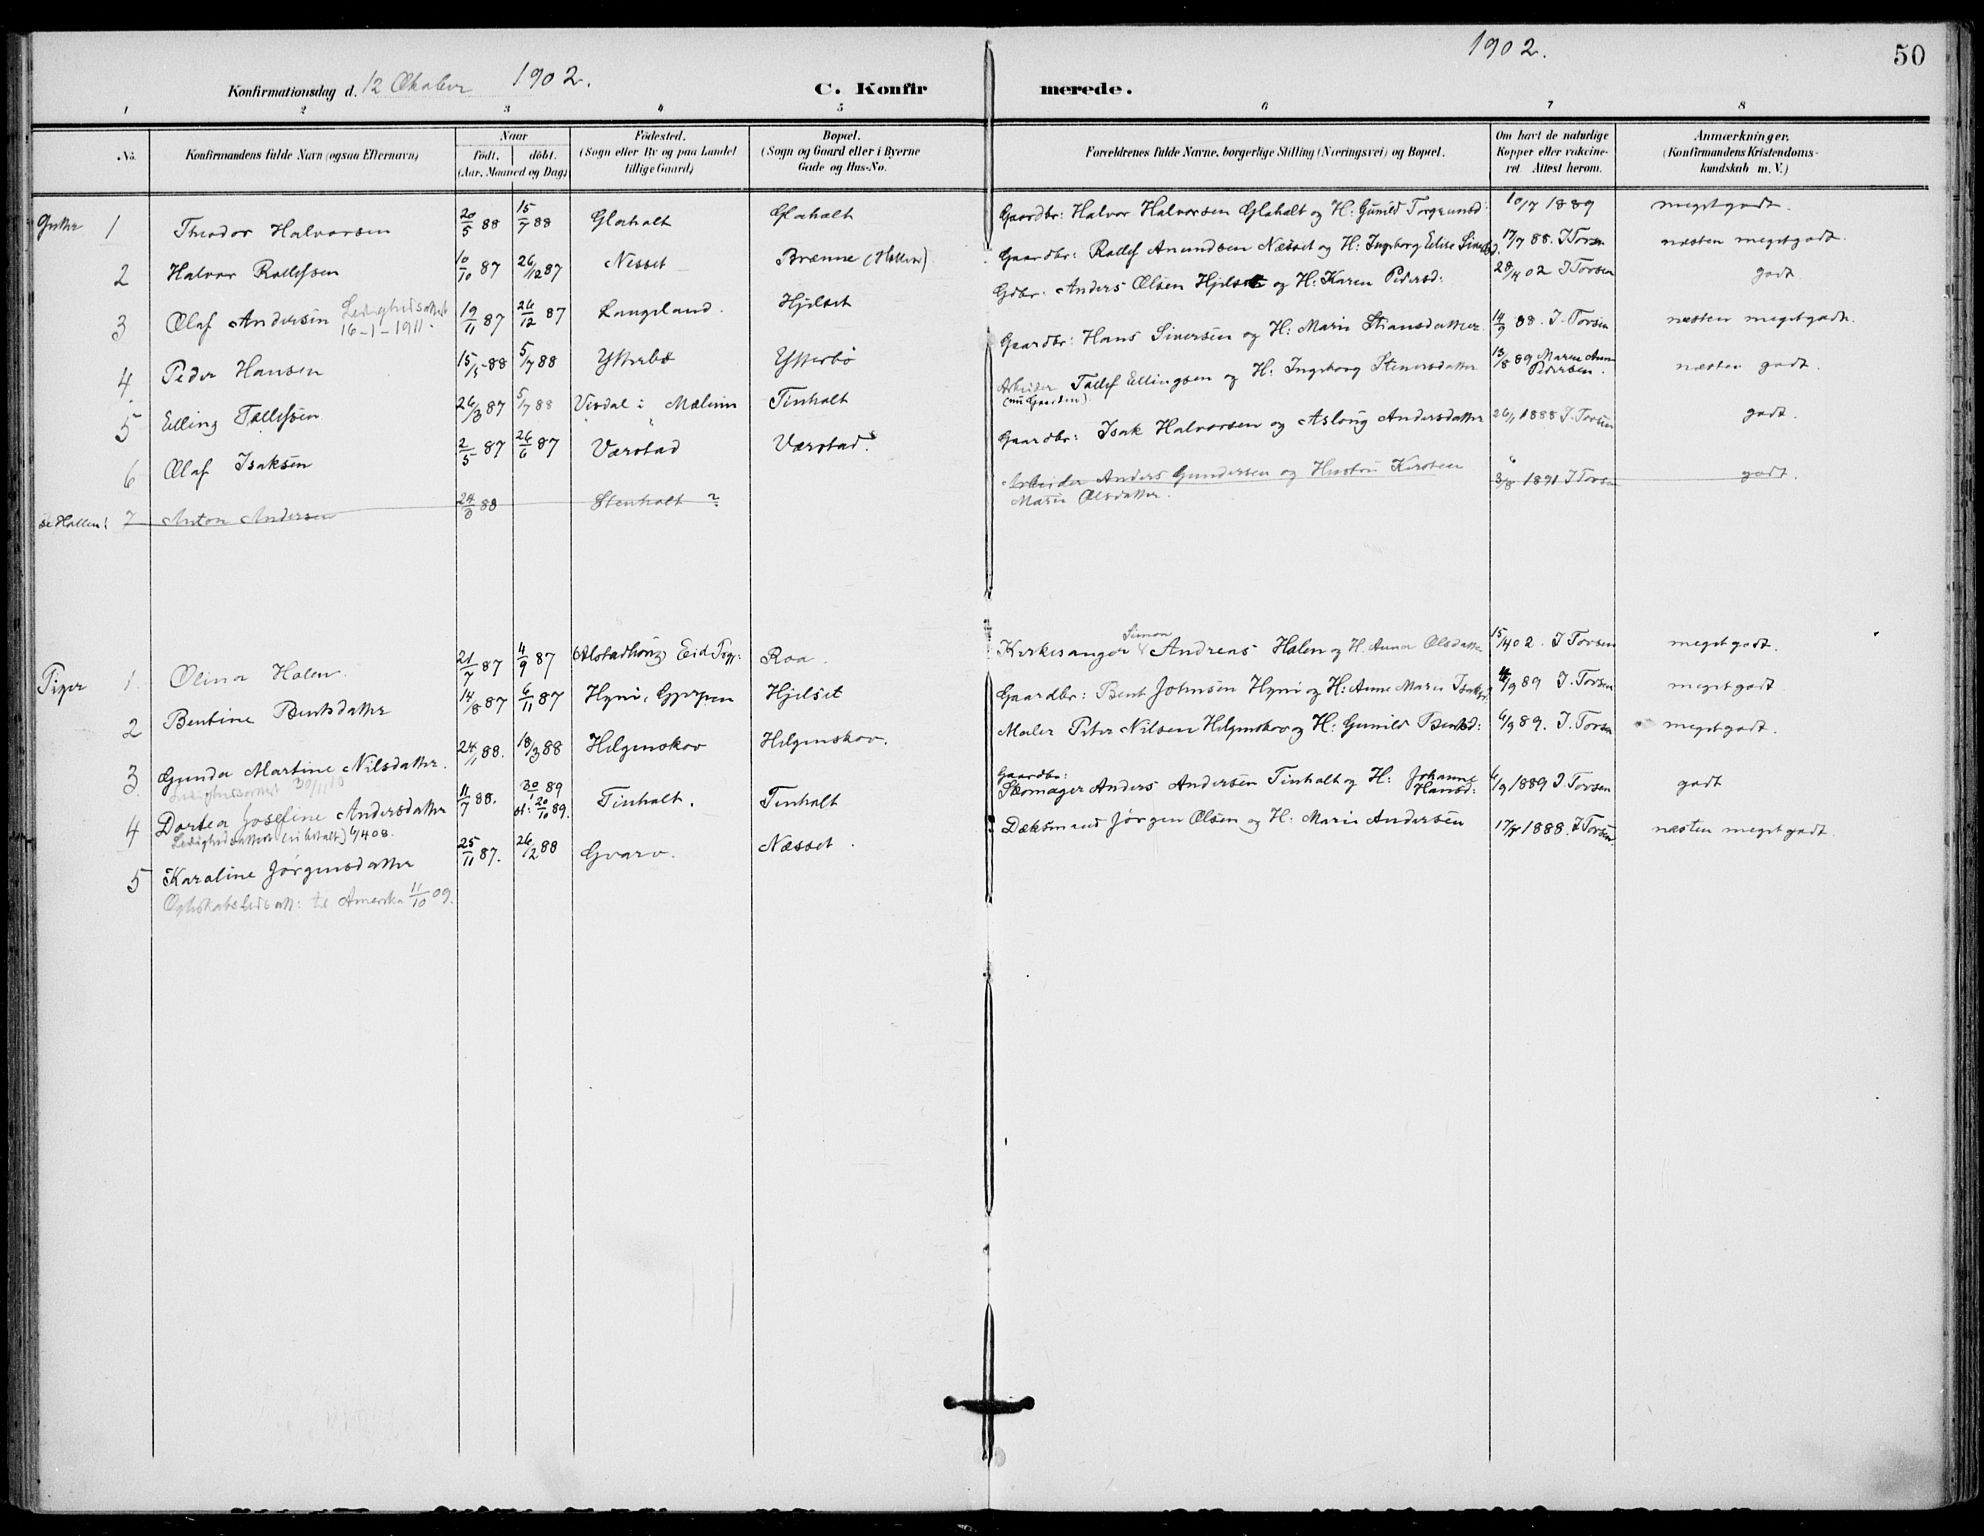 1902.
50
Konfirmationsdag d. 12 Oktober 1902.
C. Konfirmerede.
1 2 3 4 5 6 7 8
No.
Konfirmandens fulde Navn (ogsaa Efternavn)
Naar
födt. döbt.
(Aar, Maaned og Dag)
Födested.
(Sogn eller By og paa Landet tillige Gaard)
Bopæl.
(Sogn og Gaard eller i Byerne Gade og Hus-No.
Forældrenes fulde Navne, borgerlige Stilling (Næringsvei) og Bopæl.
Om havt de naturlige Kopper eller vakcineret. Attest herom.
Anmærkninger.
(Konfirmandens Kristendomskundskab m. V.)
Gutter 1 Theodor Halvorsen 20/5 88 15/7 88 Glaholt Glaholt Gaardbr: Halvor Halvorsen Glaholt og H: Gunild Torgrimsd: 10/7 1889 megetgodt.
2 Halvor Rollefsen 10/10 87 26/12 87 Nesset Brænne (Hollen) Gaardbr: Rollef Amundsen Næsset og H: Ingeborg Elise 17/7 88. I Torsen næsten megetgodt.
3 Olaf Andersen Ledighedsattest 16-1-1911. 19/11 87 26/12 87 Langeland. Hjelset Gdbr: Anders Olsen Hjelset og H: Karen Pedersd: 28/4 02 I Torsen godt
4. Peder Hansen 15/5 88 5/7 88 Ytterbø Ytterbø Gaardbr: Hans Siversen og H: Marie 14/9 88. I. Torsen næsten megetgodt.
5 Elling Tollefsen 26/3 87 5/7 88 Visdal i Mælum Tinholt Arbeider (nu Gaardm). Tollef Ellingsen og H: Ingeborg Stenersdatter 13/8 89 Maren Anne Pedersen. næsten godt.
6 Olaf Isaksen 2/5 87 26/6 87 Værstad Værstad. Gaardbr: Isak Halvorsen og Asloug Andersdatter 26/1 1888 I. Torsen godt.
se Hollen! 7 Anton Andersen 24/8 88 Stenholt? Arbeider Anders Gundersen og Hustru Kirsten Marie Olsdatter. 3/8 1891 I Torsen godt.
Piger 1. Olina Holen. 21/7 87 4/9 87 Eid Pgj: Roa. Kirkesanger Simon Andreas Holen og H. Anna Olsdatter 15/4 02. I Torsen megetgodt.
2 Bentine Bentsdatter 14/8 87 6/11 87 Hyni, Gjerpen Hjelset Gaardbr: Bent Johnsen Hyni og H: Anne Marie Isaksd: 4/9 89 I. Torsen megetgodt.
3. Gunda Martine Nilsdatter. Ledighedsattest 30/11 10 24/1 88. 18/3 88 Helgenskov Helgenskov. Maler Peter Nilsen Helgenskov og H: Gunild Bentsd: 6/9 89. I. Torsen megetgodt.
4 Dortea Josefine Andersdatter Ledighedsattest (ei betalt) 6/4 08. 11/7 88. 30/1 89 st: 20/10 89. Tinholt. Tinholt Gaardbr: Skomager Anders Andersen Tinholt og H: Johanne Hansd: 6/9 1889 I. Torsen godt
5 Karoline Jørgensdatter 25/11 87. 26/2 88 Gvarv. Næsset. Dæksmand Jørgen Olsen og H: Marie Andersen 17/7 1888. I Torsen næsten megetgodt.
Ægteskabsledsatt: til Amerika 11/10 09.